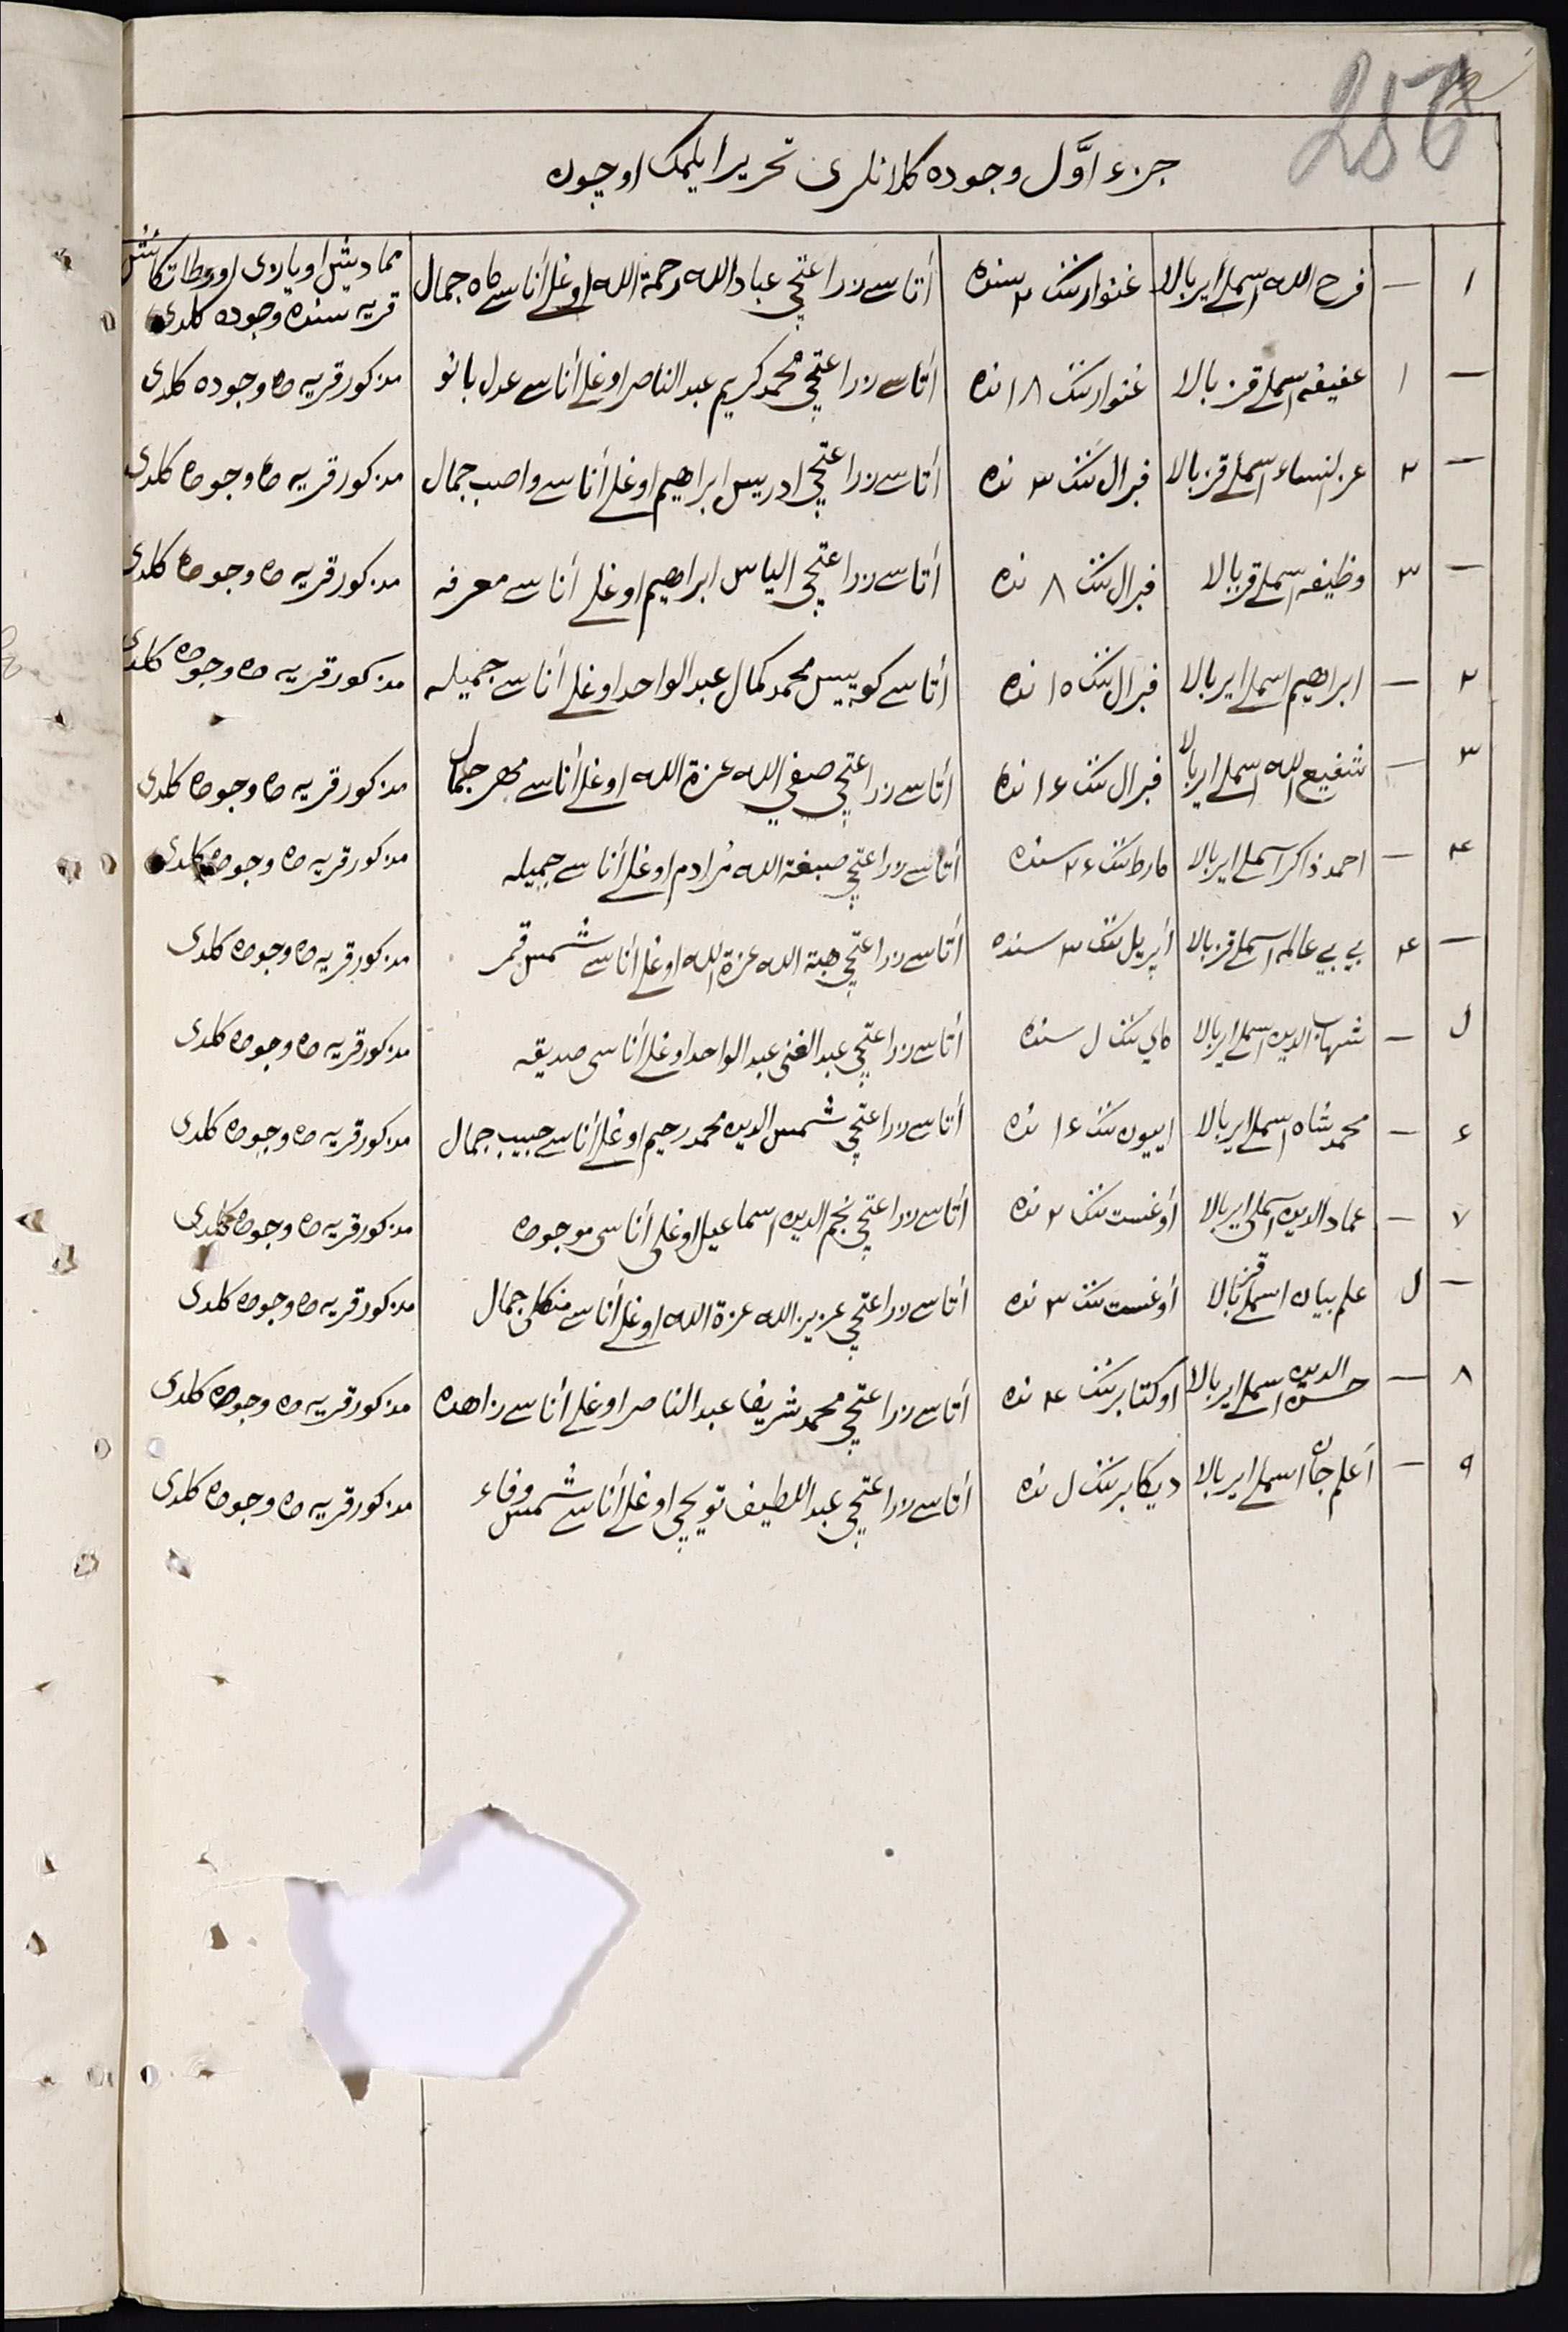 256
جزء اوّل وجوده كلانلرى تحرير ايلمك اوچون
١ — فرح الله اسملى اير بالا غنوارننک ٢ سنده أتاسى زراعتچى عباد الله رحمة الله اوغلى أناسى ماه جمال
قريه سنده وجوده كلدى
— ١ عفيفه اسملى قز بالا غنوارننک ١٨ نده أتاسى زراعتچى محمد كريم عبد الناصر اوغلى أناسى عدل بانو مذكور قريه ده وجوده كلدى
— ٢ عز النساء اسملى قز بالا فبرال ننک ٣ نده أتاسى زراعتچى ادريس ابراهيم اوغلى أناسى واصب جمال مذكور قريه ده وجوده كلدى
— ٣ وظيفه اسملى قز بالا فبرال ننک ٨ نده أتاسى زراعتچى الياس ابراهيم اوغلى أناسى معرفه مذكور قريه ده وجوده كلدى
٢ — ابراهيم اسملى اير بالا فبرال ننک ١٥ نده أتاسى كوپيس محمد كمال عبد الواحد اوغلى أناسى جميله مذكور قريه ده وجوده كلدى
٣ — شفيع الله اسملى اير بالا فبرال ننک ١٦ نده أتاسى زراعتچى صفي الله عزة الله اوغلى أناسى مهر جمال مذكور قريه ده وجوده كلدى
۴ — احمد ذاكر اسملى اير بالا مارط ننک ٢٦ سنده أتاسى زراعتچى صبغة الله مرادم اوغلى أناسى جميله مذكور قريه ده وجوده كلدى
— ۴ بي بي عالمه اسملى قز بالا أپريل ننک ٣ سنده أتاسى زراعتچى هبة الله عزة الله اوغلى أناسى شمس قمر مذكور قريه ده وجوده كلدى
ل — شهاب الدين اسملى اير بالا ماي ننک ل سنده أتاسى زراعتچى عبد الغنى عبد الواحد اوغلى أناسى صديقه مذكور قريه ده وجوده كلدى
٦ — محمد شاه اسملى اير بالا اييون ننک ١٦ نده أتاسى زراعتچى شمس الدين محمد رحيم اوغلى أناسى حبيب جمال مذكور قريه ده وجوده كلدى
٧ — عماد الدين اسملى اير بالا أوغست ننک ٢ نده أتاسى زراعتچى نجم الدين اسماعيل اوغلى أناسى موجوده مذكور قريه ده وجوده كلدى
— ل علم بيان اسملى قز بالا أوغست ننک ٣ نده أتاسى زراعتچى عزيز الله عزة الله اوغلى أناسى منكلى جمال مذكور قريه ده وجوده كلدى
٨ — حسن الدين اسملى اير بالا اوكتابر ننک ۴ نده أتاسى زراعتچى محمد شريف عبد الناصر اوغلى أناسى زاهده مذكور قريه ده وجوده كلدى
٩ — أعلم جان اسملى اير بالا ديكابر ننک ل نده أتاسى زراعتچى عبد اللطيف تويچى اوغلى أناسى شمس وفاء مذكور قريه ده وجوده كلدى